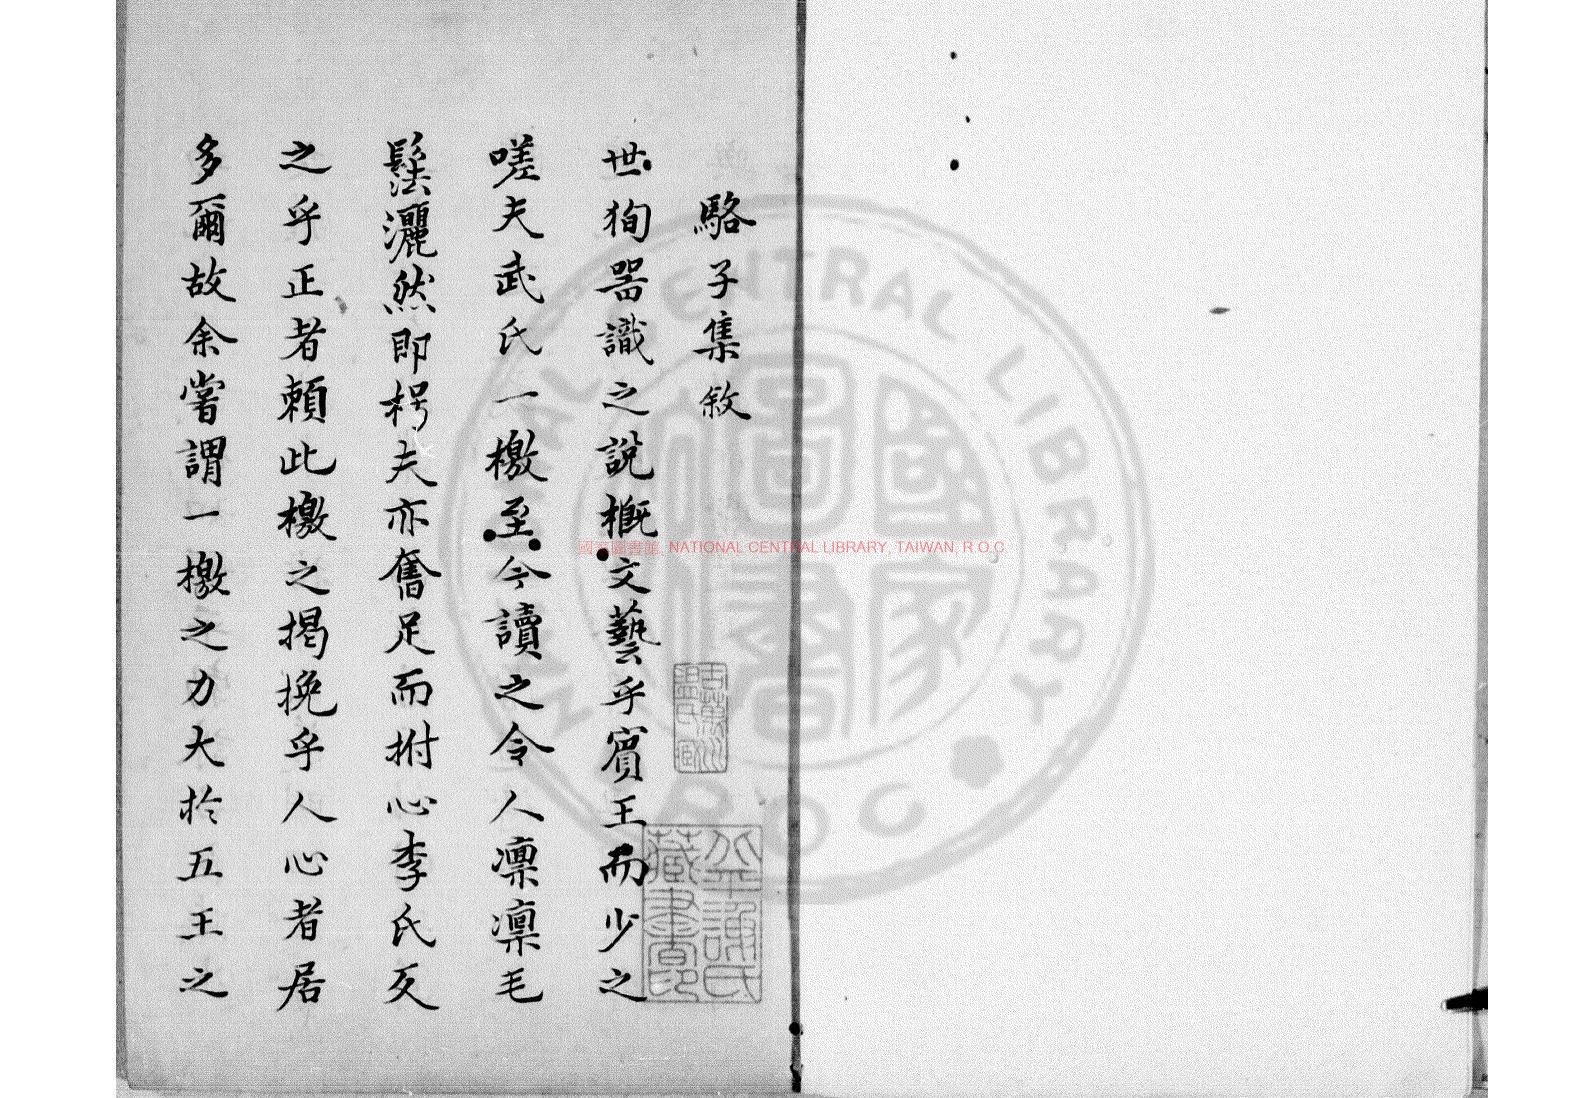 駱子集敘
世狥噐識之說槪文藝乎賓王而少之
嗟夫武氏一檄至今讀之令人凛凛毛
髮灑然即枵夫亦奮足而拊心李氏
之乎正者頼此檄之揭挽乎人心者居
多爾故余嘗謂一檄之力大於五王之
國家圖書館, NATIONAL CENTRAL LIBRARY, TAIWAN, R.O.C.
國家圖書館
NATIONAL CENTRAL LIBRARY
ROC
藏書印